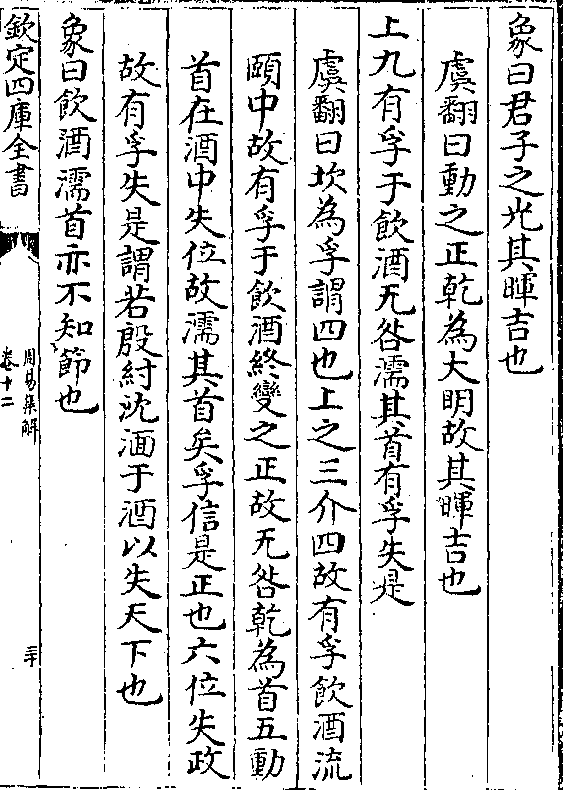 象曰君子之光其暉吉也
虞翻曰動之正乾為大明故其暉吉也
上九有孚于飲酒无咎濡其首有孚失是
虞翻曰坎為孚謂四也上之三介四故有孚飲酒流
頤中故有孚于飲酒終變之正故无咎乾為首五動
首在酒中失位故濡其首矣孚信是正也六位失政
故有孚失是謂若殷紂沈湎于酒以失天下也
象曰飲酒濡首亦不知節也
欽定四庫全書
周易集解
卷十二
三十